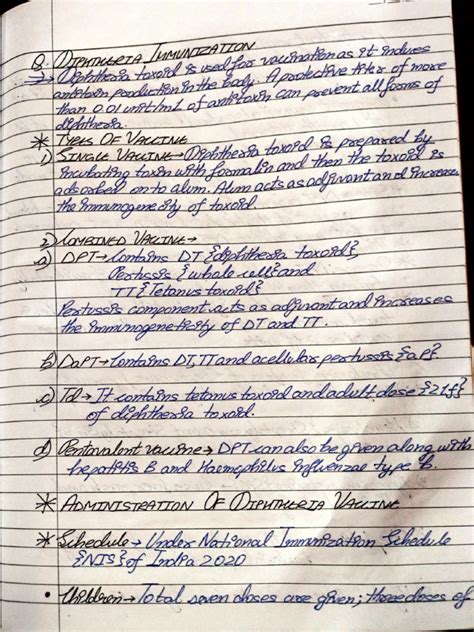 Q. DIPHTHERIA IMMUNIZATION
→ Diphtheria toxoid is used for vaccination as it induces
antitoxin production in the body. A protective titer of more
than 0.01 unit/mL of antitoxin can prevent all forms of
diphtheria.
* TYPES OF VACCINE
1) SINGLE VACCINE → Diphtheria toxoid is prepared by
incubating toxin with formalin and then the toxoid is
adsorbed on to alum. Alum acts as adjuvant and increases
the immunogenecity of toxoid.
2) COMBINED VACCINE →
a) DPT → Contains DT {diphtheria toxoid},
Pertussis {whole cell} and
TT {Tetanus toxoid}
Pertussis component acts as adjuvant and increases
the immunogeneticity of DT and TT.
b) DaPT → Contains DT, TT and acellular pertussis {aP}.
c) Td → It contains tetanus toxoid and adult dose {2Lf}
of diphtheria toxoid.
d) Pentavalent vaccine → DPT can also be given along with
hepatitis B and Haemophilus influenzae type b.
* ADMINISTRATION OF DIPHTHERIA VACCINE
* Schedule → Under National Immunization Schedule
{NIS} of India 2020
• Children → Total seven doses are given; three doses of